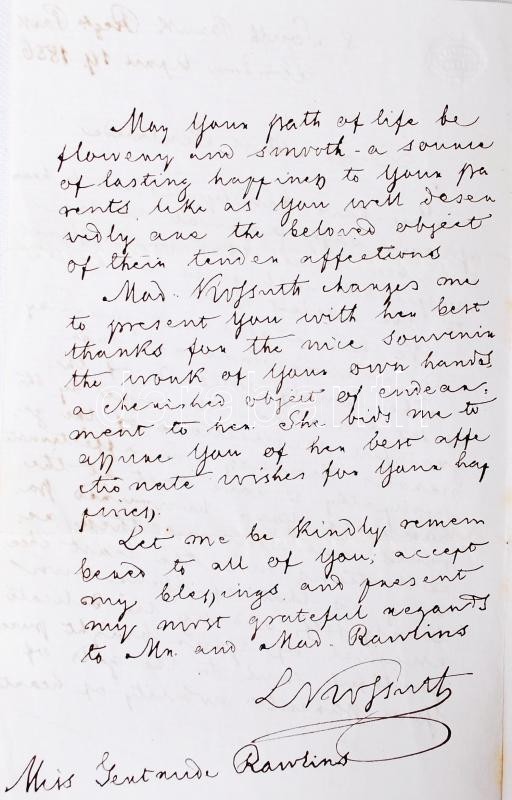 May Your path of life be
flowery and smooth - a source
of lasting happiness to Your pa
rents, like as You well deser
vedly are the beloved object
of their tender affections
Mad. Kossuth charges me
to present You with her best
thanks for the nice souvenir
the work of Your own hands
a cherished object of endear,
ment to her. She bids me to
assure You of her best affe
ctionate wishes for Your hap
piness.
Let me be kindly remem
bered to all of You; accept
my blessings and present
my most grateful regards
to Mr. and Mad. Rawlins
L Kossuth
Miss Gertrude Rawlins